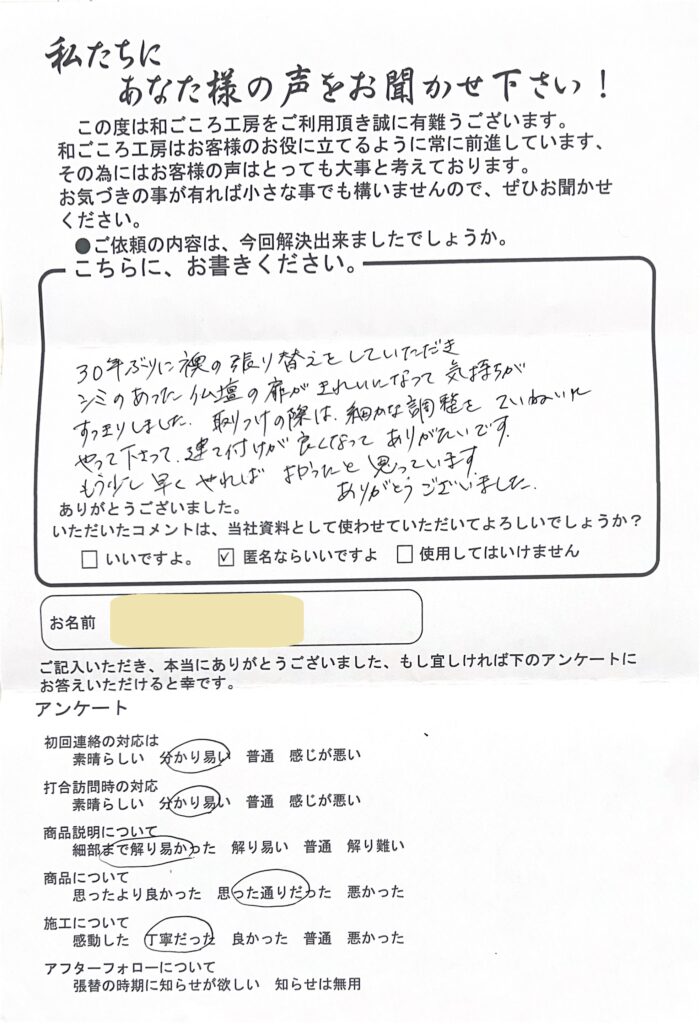 私たちに
あなた様の声をお聞かせ下さい！
この度は和ごころ工房をご利用頂き誠に有難うございます。
和ごころ工房はお客様のお役に立てるように常に前進しています、
その為にはお客様の声はとっても大事と考えております。
お気づきの事が有れば小さな事でも構いませんので、ぜひお聞かせ
ください。
●ご依頼の内容は、今回解決出来ましたでしょうか。
こちらに、お書きください。
30年ぶりに襖の張り替えをしていただき
シミのあった仏壇の扉がきれいになって気持ちが
すっきりしました. 取りつけの際は、細かな調整をていねいに
やって下さって、建て付けが良くなってありがたいです.
もう少し早くやれば よかったと思っています.
ありがとうございました.
ありがとうございました。
いただいたコメントは、当社資料として使わせていただいてよろしいでしょうか？
□ いいですよ。 ☑ 匿名ならいいですよ □ 使用してはいけません
お名前
ご記入いただき、本当にありがとうございました、もし宜しければ下のアンケートに
お答えいただけると幸です。
アンケート
初回連絡の対応は
素晴らしい 分かり易い 普通 感じが悪い
打合訪問時の対応
素晴らしい 分かり易い 普通 感じが悪い
商品説明について
細部まで解り易かった 解り易い 普通 解り難い
商品について
思ったより良かった 思った通りだった 悪かった
施工について
感動した 丁寧だった 良かった 普通 悪かった
アフターフォローについて
張替の時期に知らせが欲しい 知らせは無用